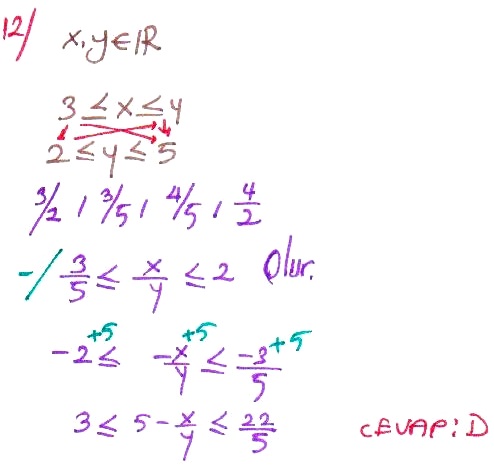 12/ x,y∈ℝ
3 ≤ x ≤ 4
2 ≤ y ≤ 5
3/2, 3/5, 4/5, 4/2
-/ 3/5 ≤ x/y ≤ 2 Olur.
+5 +5 +5
-2 ≤ -x/y ≤ -3/5
3 ≤ 5 - x/y ≤ 22/5
CEVAP: D